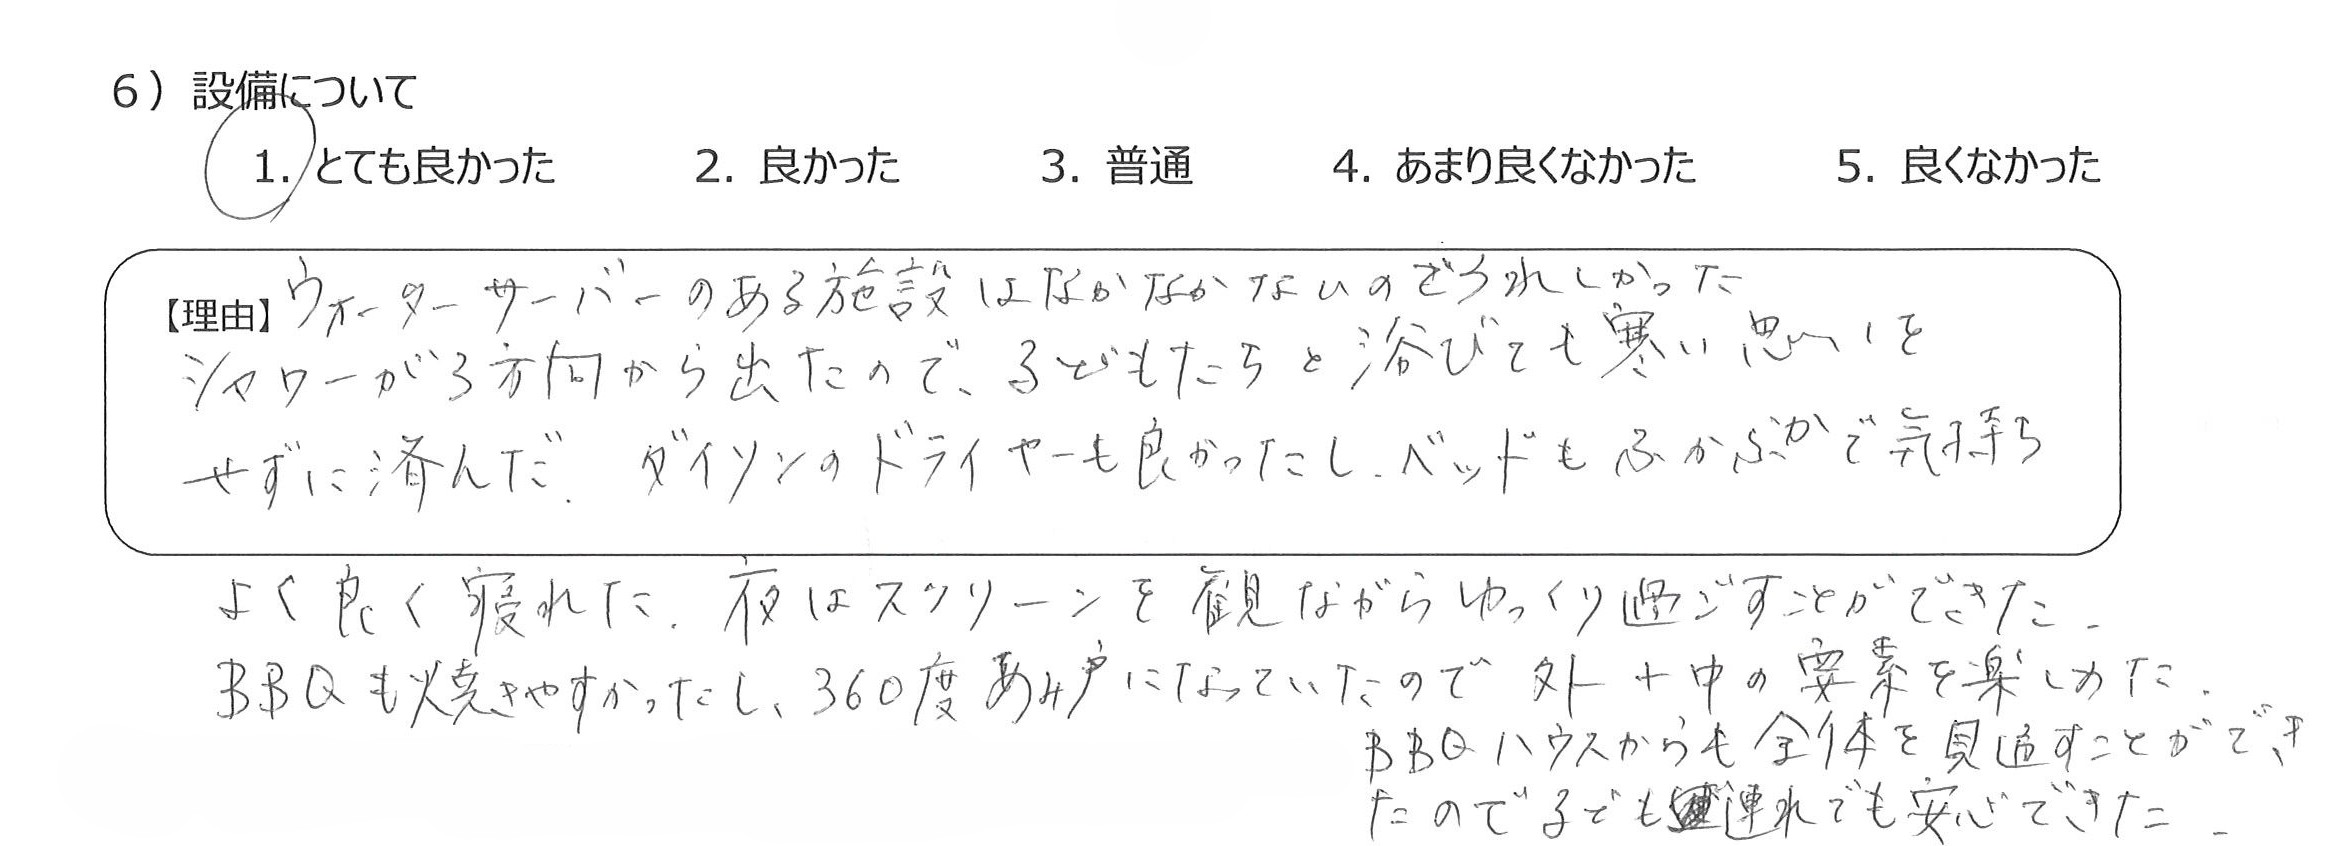 6）設備について
1. とても良かった 2. 良かった 3. 普通 4. あまり良くなかった 5. 良くなかった
【理由】ウォーターサーバーのある施設はなかなかないのでうれしかった
シャワーが3方向から出たので、子どもたちと浴びても寒い思いを
せずに済んだ. ダイソンのドライヤーも良かったし、ベッドもふかふかで気持ち
よく良く寝れた. 夜はスクリーンを観ながらゆっくり過ごすことができた.
BBQも焼きやすかったし、360度あみ戸になっていたので外+中の要素を楽しめた.
BBQハウスからも全体を見通すことができ
たので子ども連れでも安心できた.